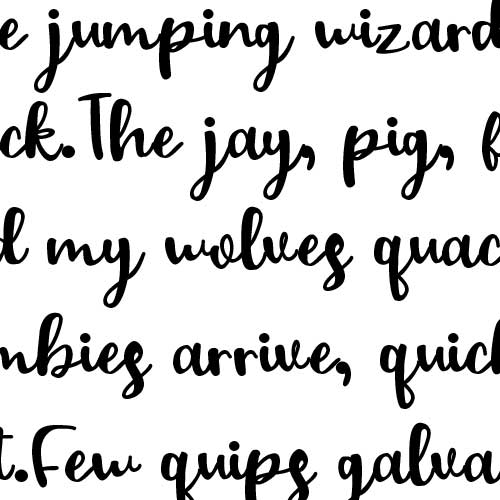 e jumping wizard
ck.The jay, pig, f
d my wolves quac
mbies arrive, quick
t.Few quips galva